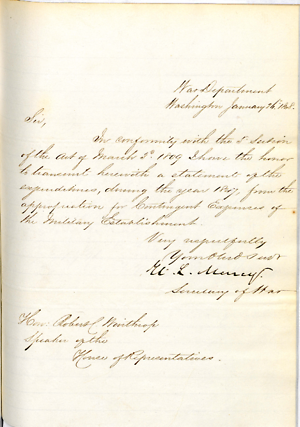 War Department
Washington January 26, 1848.
Sir,
In conformity with the Section
of the Act of March 3d 1809 I have the honor
to transmit herewith a statement of the
expenditures, during the year 1847, from the
appropriation for Contingent Expenses of
the Military Establishment.
Very respectfully
Your Obt Servt
W. L. Marcy
Secretary of War
Hon. Robert C Winthrop
Speaker of the
House of Representatives.